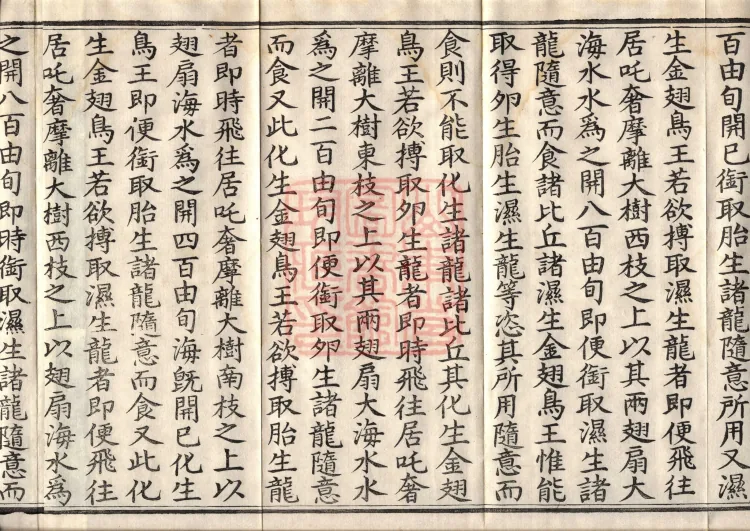 百由旬開已銜取胎生諸龍隨意所用又濕
生金翅鳥王若欲搏取濕生龍者即便飛往
居吒奢摩離大樹西枝之上以其兩翅扇大
海水水為之開八百由旬即便銜取濕生諸
龍隨意而食諸比丘諸濕生金翅鳥王惟能
取得卵生胎生濕生龍等恣其所用隨意而
食則不能取化生諸龍諸比丘其化生金翅
鳥王若欲搏取卵生龍者即時飛往居吒奢
摩離大樹東枝之上以其兩翅扇大海水水
為之開二百由旬即便銜取卵生諸龍隨意
而食又此化生金翅鳥王若欲搏取胎生龍
者即時飛往居吒奢摩離大樹南枝之上以
翅扇海水為之開四百由旬海既開已化生
鳥王即便銜取胎生諸龍隨意而食又此化
生金翅鳥王若欲搏取濕生龍者即便飛往
居吒奢摩離大樹西枝之上以翅扇海水為
之開八百由旬即時銜取濕生諸龍隨意而